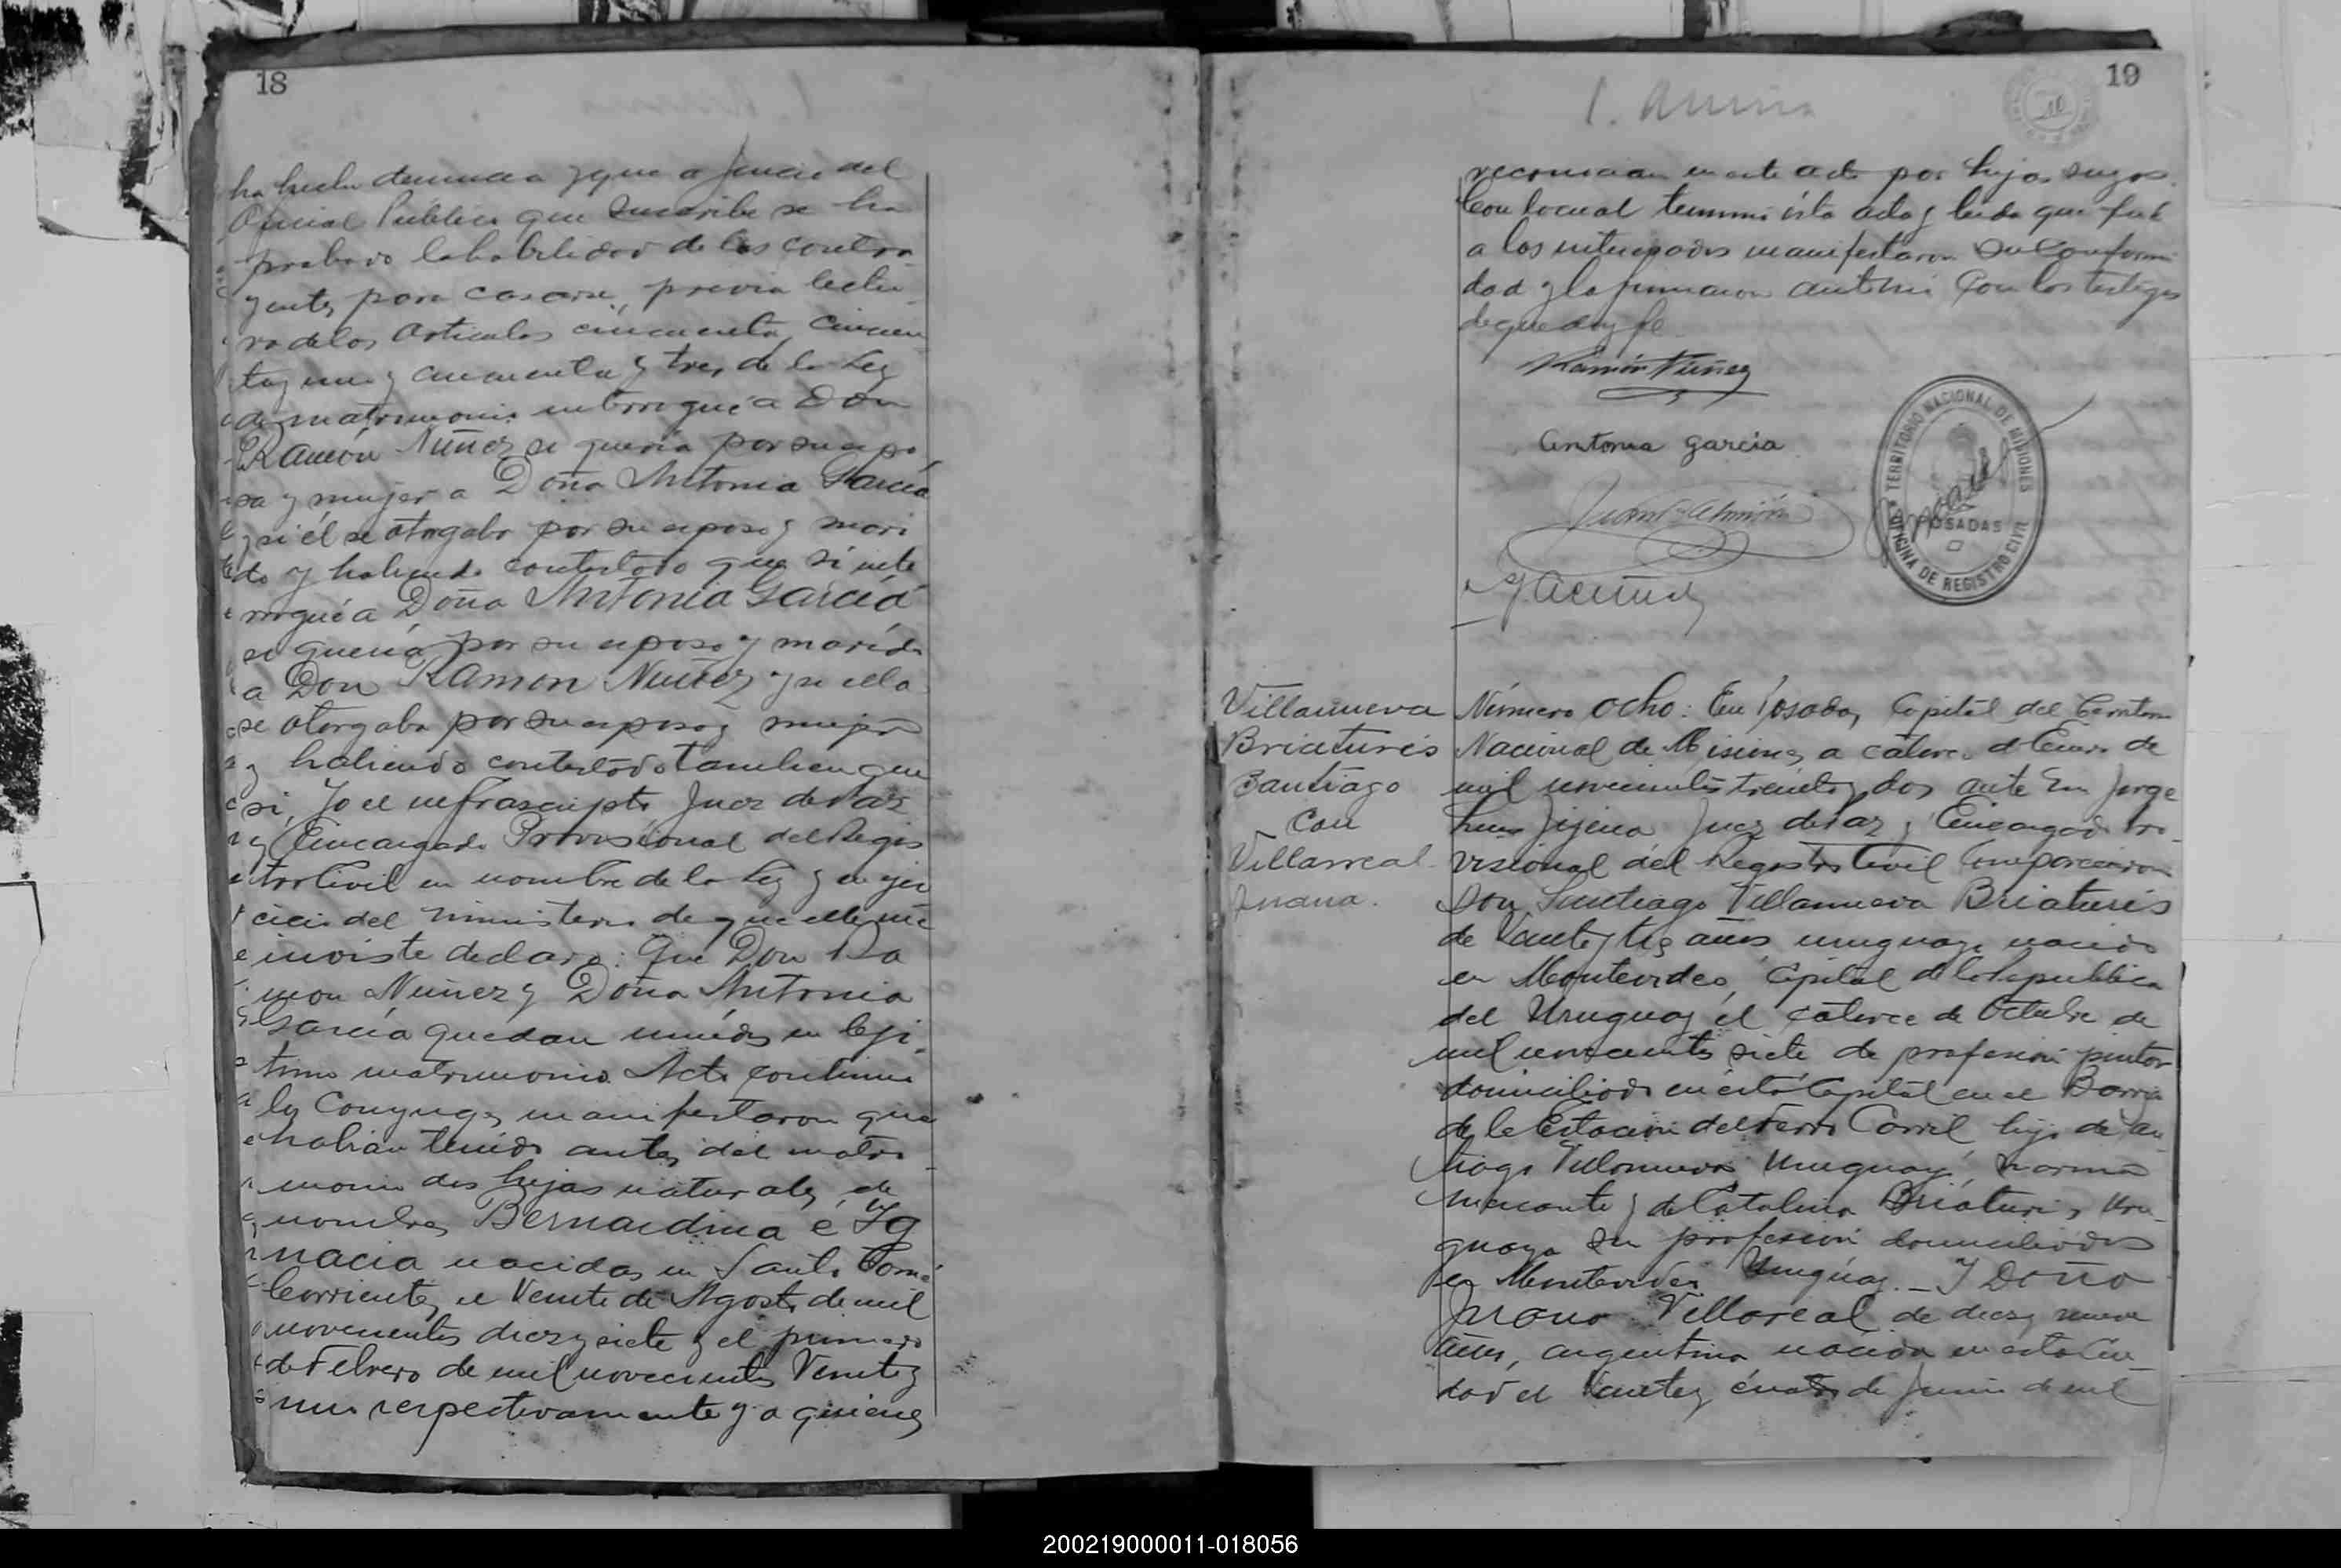 18
ha hecho denuncia y que a juicio del
Oficial Público que suscribe se ha
probado la habilidad de los contra
yentes para casarse, previa lectu
ra de los articulos cincuenta, cincuen
ta y uno y cincuenta y tres de la Ley
de matrimonio interrogué a Don
Ramón Núñez si queria por su espo
sa y mujer a Doña Antonia García
y si él se otorgaba por su esposo y mari
do y habiendo contestado que si inte
rrogué a Doña Antonia García
si quería por su esposo y marido
a Don Ramon Nuñez y si ella
se otorgaba por su esposa y mujer
y habiendo contestado tambien que
si, Yo el infrascripto Juez de Paz
y Encargado Provisional del Regis
tro Civil en nombre de la Ley y en ejer
cicio del ministerio de que ella me
inviste declaro: Que Don Ra
mon Nuñez y Doña Antonia
García quedan unidos en legi
timo matrimonio. Acto continuo
los Conyuges manifestaron que
habian tenido antes del matri
monio dos hijas naturales de
nombres Bernardina é Ig
nacia nacidas en Santo Tomé
Corrientes, el Veinte de Agosto de mil
novecientos diez y siete y el primero
de Febrero de mil novecientos Veinte y
uno respectivamente y a quienes
19
reconocian en este acto por hijas suyas.
Con lo cual terminó ésta acta y leida que fué
a los interesados manifestaron su conformi
dad y la firmaron ante mi con los testigos
de que doy fe
Ramón Núñez
Antonia García
TERRITORIO NACIONAL DE MISIONES
POSADAS
OFICINA DE REGISTRO CIVIL
Y Acuña
Villanueva
Briatures
Santiago
con
Villarreal
Juana.
Número ocho: En Posadas, Capital del Territorio
Nacional de Misiones a catorce de Enero de
mil novecientos treinta y dos ante mi Jorge
Luis Jijena Juez de Paz y Encargado Pro-
visional del Registro Civil Comparecieron
Don Santiago Villanueva Briatures
de Veinte y tres años uruguayo nacido
en Montevideo, Capital de la Republica
del Uruguay el catorce de Octubre de
mil novecientos siete de profesión pintor
domiciliado en ésta Capital en el Barrio
de la Estación del Ferro Carril hijo de San
tiago Villanueva Uruguayo, marino
mercante y de Catalina Briatures, Uru-
guaya sin profesión domiciliados
en Montevideo Uruguay.- Y Doña
Juana Villareal de diez y nueve
años, argentina, nacida en esta Ciu-
dad el Veinte y cuatro de Junio de mil
200219000011-018056